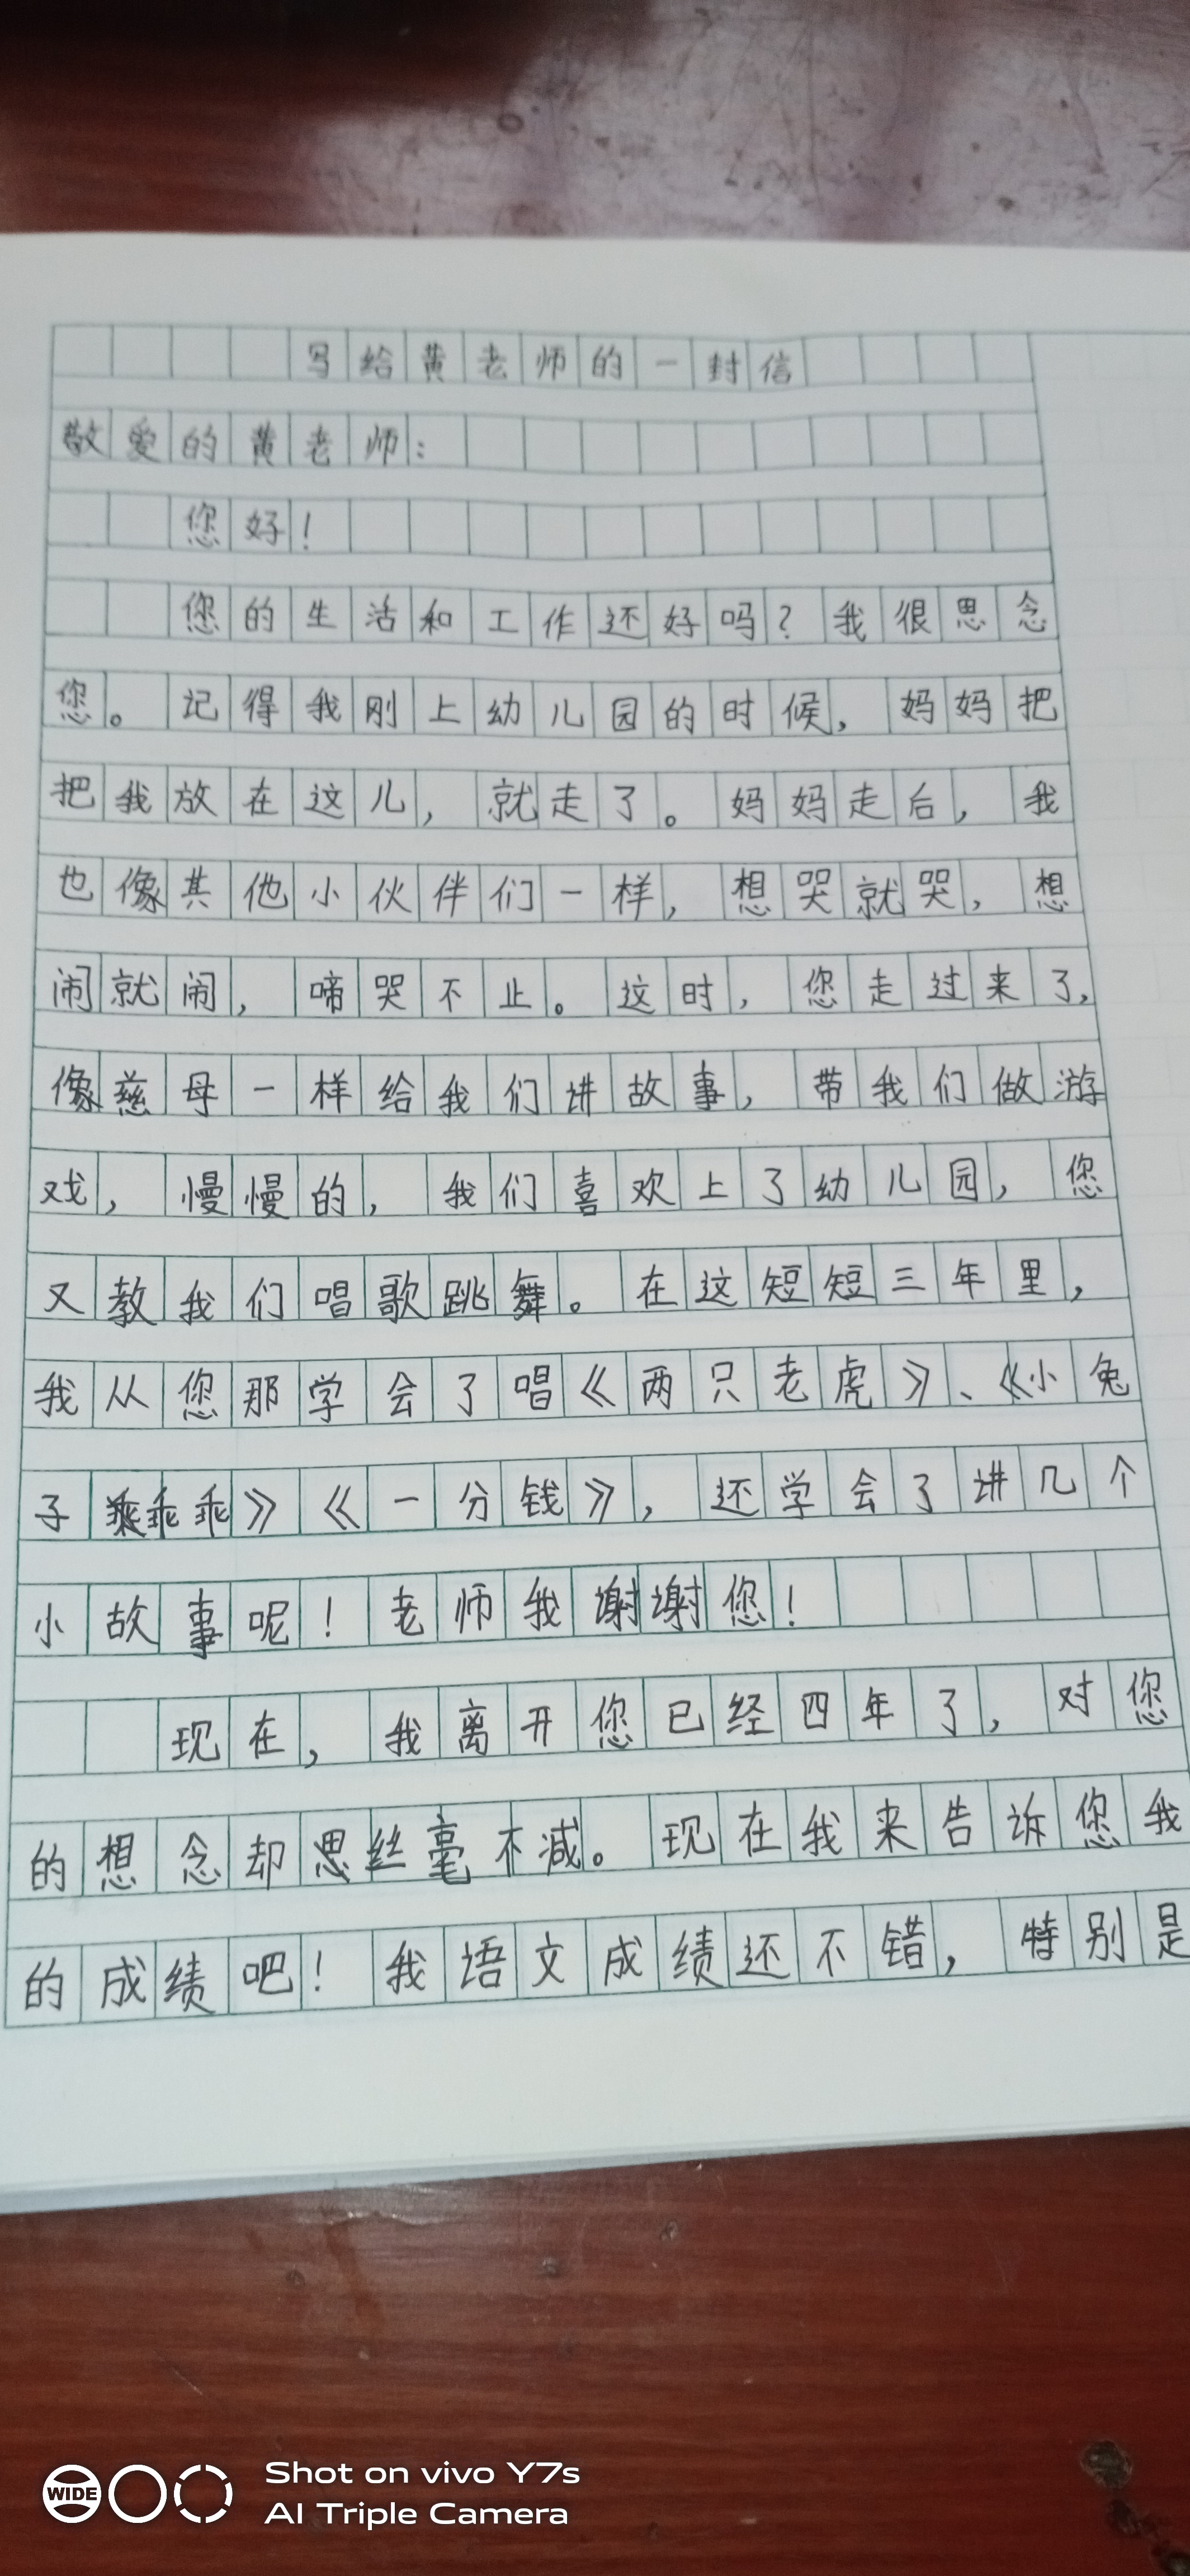 写给黄老师的一封信
敬爱的黄老师：
您好！
您的生活和工作还好吗？我很思念
您。记得我刚上幼儿园的时候，妈妈把
把我放在这儿，就走了。妈妈走后，我
也像其他小伙伴们一样，想哭就哭，想
闹就闹，啼哭不止。这时，您走过来了，
像慈母一样给我们讲故事，带我们做游
戏，慢慢的，我们喜欢上了幼儿园，您
又教我们唱歌跳舞。在这短短三年里，
我从您那学会了唱《两只老虎》、《小兔
子乖乖》《一分钱》，还学会了讲几个
小故事呢！老师我谢谢您！
现在，我离开您已经四年了，对您
的想念却思丝毫不减。现在我来告诉您我
的成绩吧！我语文成绩还不错，特别是
WIDE
Shot on vivo Y7s
AI Triple Camera